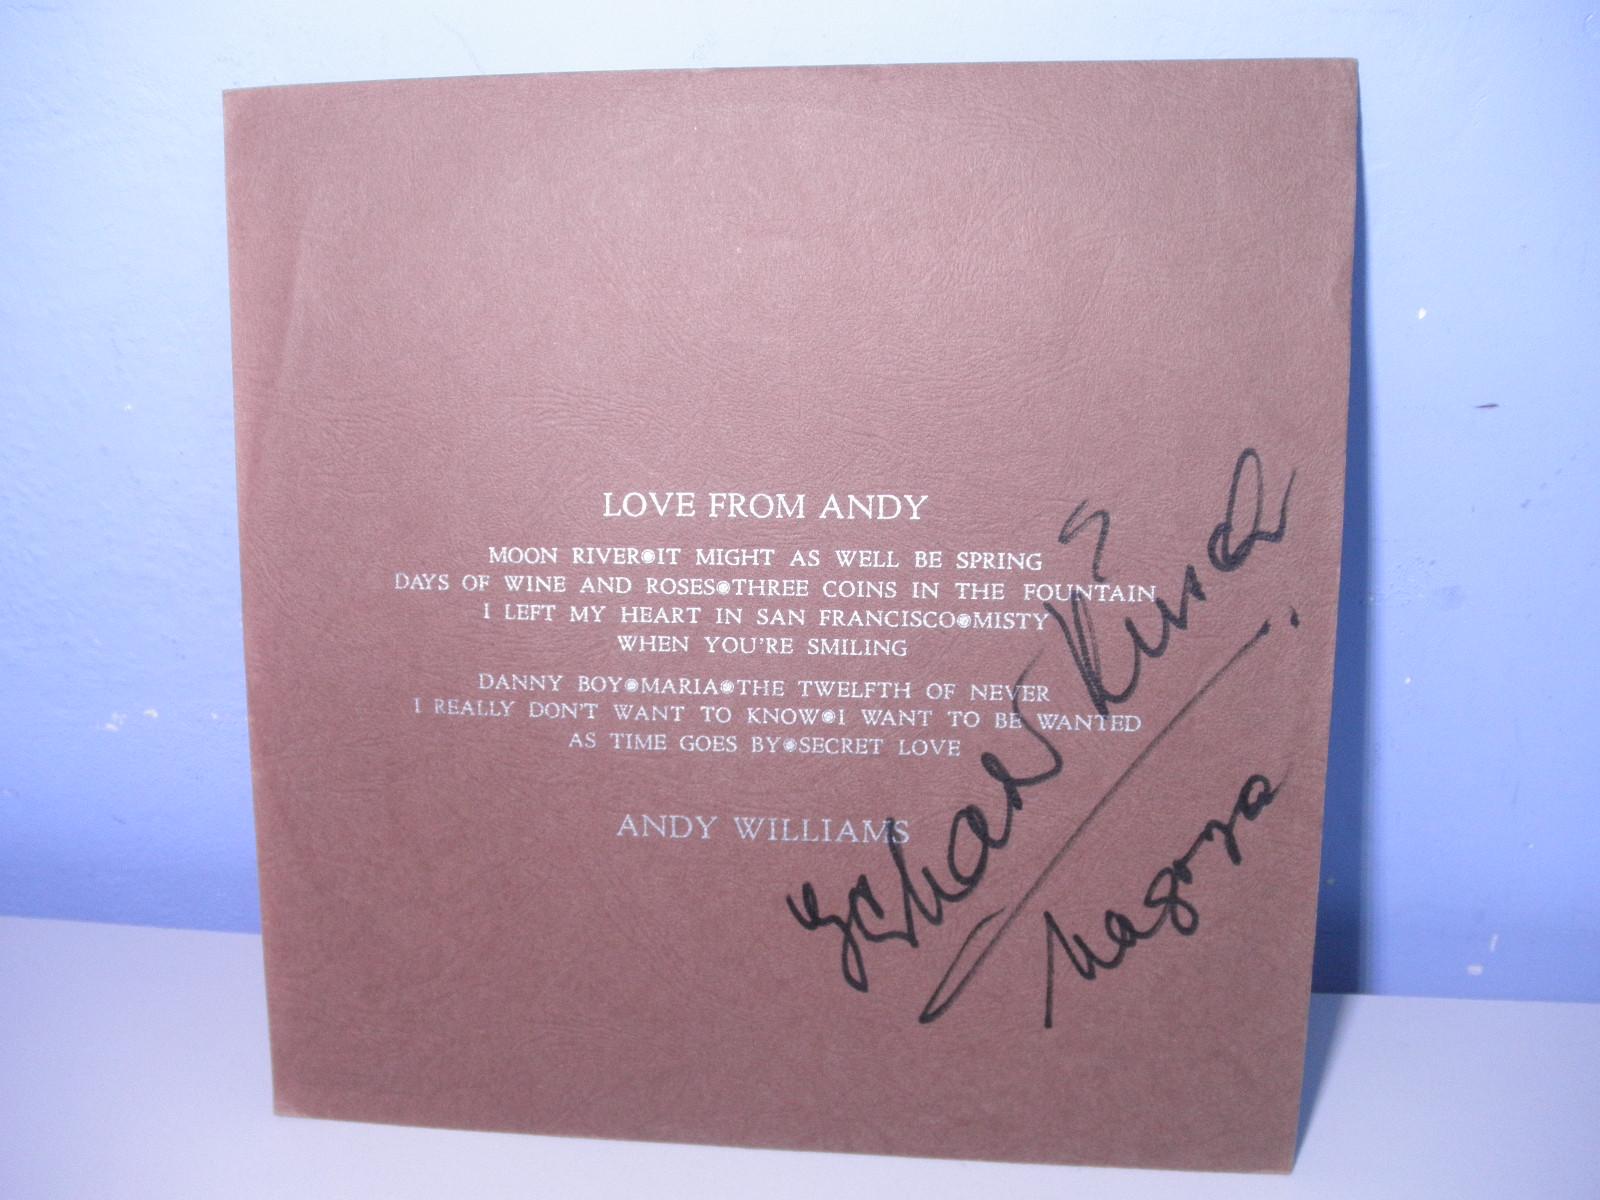 LOVE FROM ANDY
MOON RIVER●IT MIGHT AS WELL BE SPRING
DAYS OF WINE AND ROSES●THREE COINS IN THE FOUNTAIN
I LEFT MY HEART IN SAN FRANCISCO●MISTY
WHEN YOU'RE SMILING
DANNY BOY●MARIA●THE TWELFTH OF NEVER
I REALLY DON'T WANT TO KNOW●I WANT TO BE WANTED
AS TIME GOES BY●SECRET LOVE
ANDY WILLIAMS